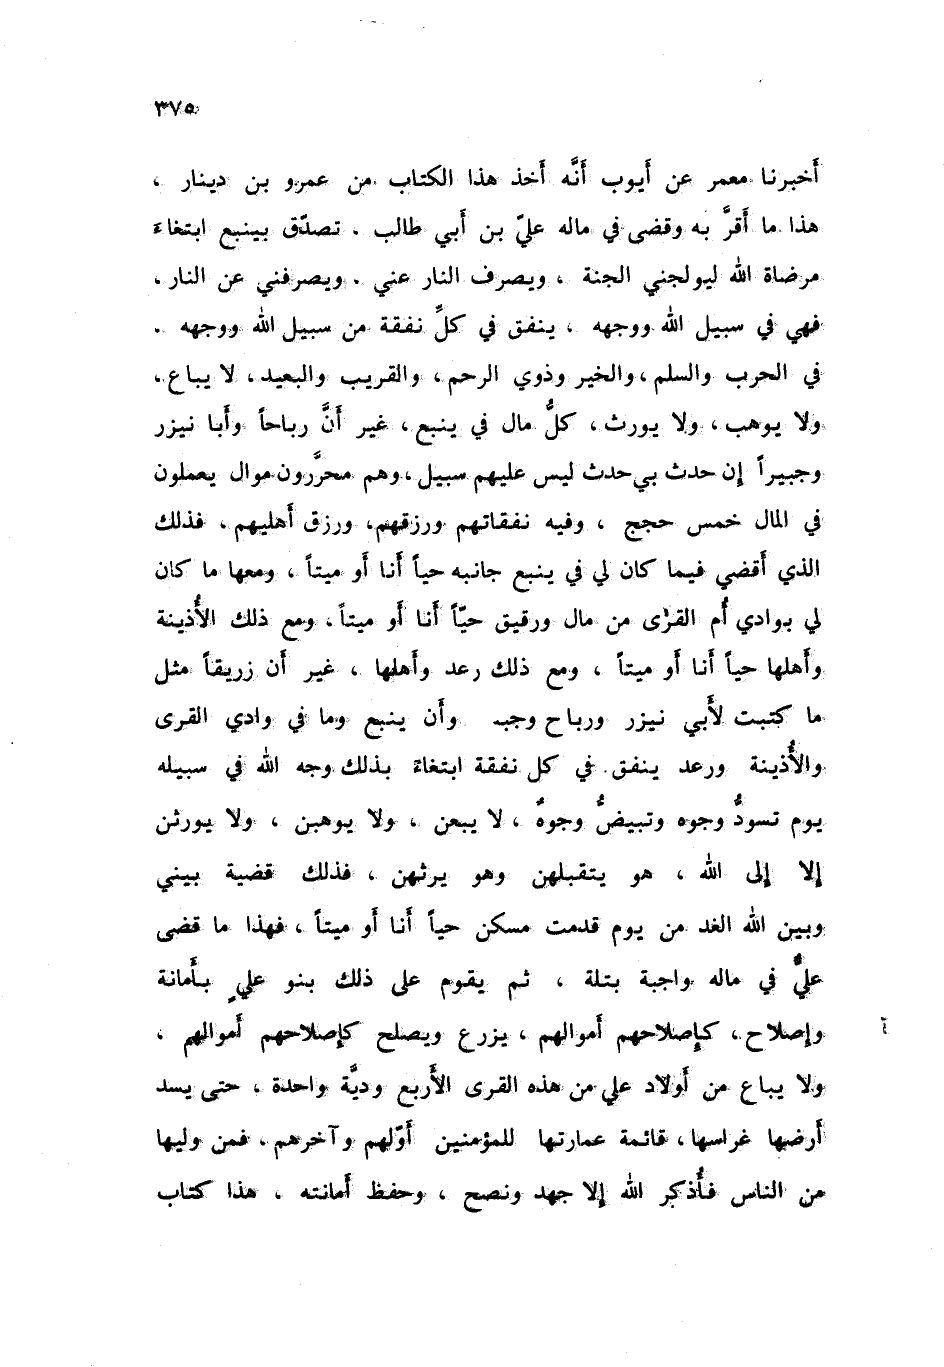 ٣٧٥
أخبرنا معمر عن أيوب أنَّه أخذ هذا الكتاب من عمرو بن دينار ،
هذا ما أقرَّ به وقضى في ماله عليّ بن أبي طالب . تصدّق بينبع ابتغاءَ
مرضاة الله ليولجني الجنة ، ويصرف النار عني . ويصرفني عن النار .
فهي في سبيل الله ووجهه ، ينفق في كلِّ نفقة من سبيل الله ووجهه .
في الحرب والسلم ، والخير وذوي الرحم ، والقريب والبعيد ، لا يباع ،
ولا يوهب ، ولا يورث ، كلُّ مال في ينبع ، غير أنَّ رباحاً وأبا نيزر
وجبيراً إن حدث بي حدث ليس عليهم سبيل ، وهم محرَّرون موال يعملون
في المال خمس حجج ، وفيه نفقاتهم ورزقهم ، ورزق أهليهم ، فذلك
الذي أقضي فيما كان لي في ينبع جانبه حياً أنا أو ميتاً ، ومعها ما كان
لي بوادي أُم القرٰى من مال ورقيق حيّاً أنا أو ميتاً ، ومع ذلك الأُذينة
وأهلها حياً أنا أو ميتاً ، ومع ذلك رعد وأهلها ، غير أن زريقاً مثل
ما كتبت لأبي نيزر ورباح وأن ينبع وما في وادي القرى
والأُذينة ورعد ينفق في كل نفقة ابتغاءً بذلك وجه الله في سبيله
يوم تسودُّ وجوه وتبيضُّ وجوهٌ ، لا يبعن ، ولا يوهبن ، ولا يورثن
إلا إلى الله ، هو يتقبلهن وهو يرثهن ، فذلك قضية بيني
وبين الله الغد من يوم قدمت مسكن حياً أنا أو ميتاً ، فهذا ما قضى
عليٌّ في ماله واجبة بتلة ، ثم يقوم على ذلك بنو عليٍ بأمانة
وإصلاح ، كإصلاحهم أموالهم ، يزرع ويصلح كإصلاحهم أموالهم ،
ولا يباع من أولاد علي من هذه القرى الأربع وديَّة واحدة ، حتى يسد
أرضها غراسها ، قائمة عمارتها للمؤمنين أوّلهم وآخرهم ، فمن وليها
من الناس فأُذكر الله إلا جهد ونصح ، وحفظ أمانته ، هذا كتاب